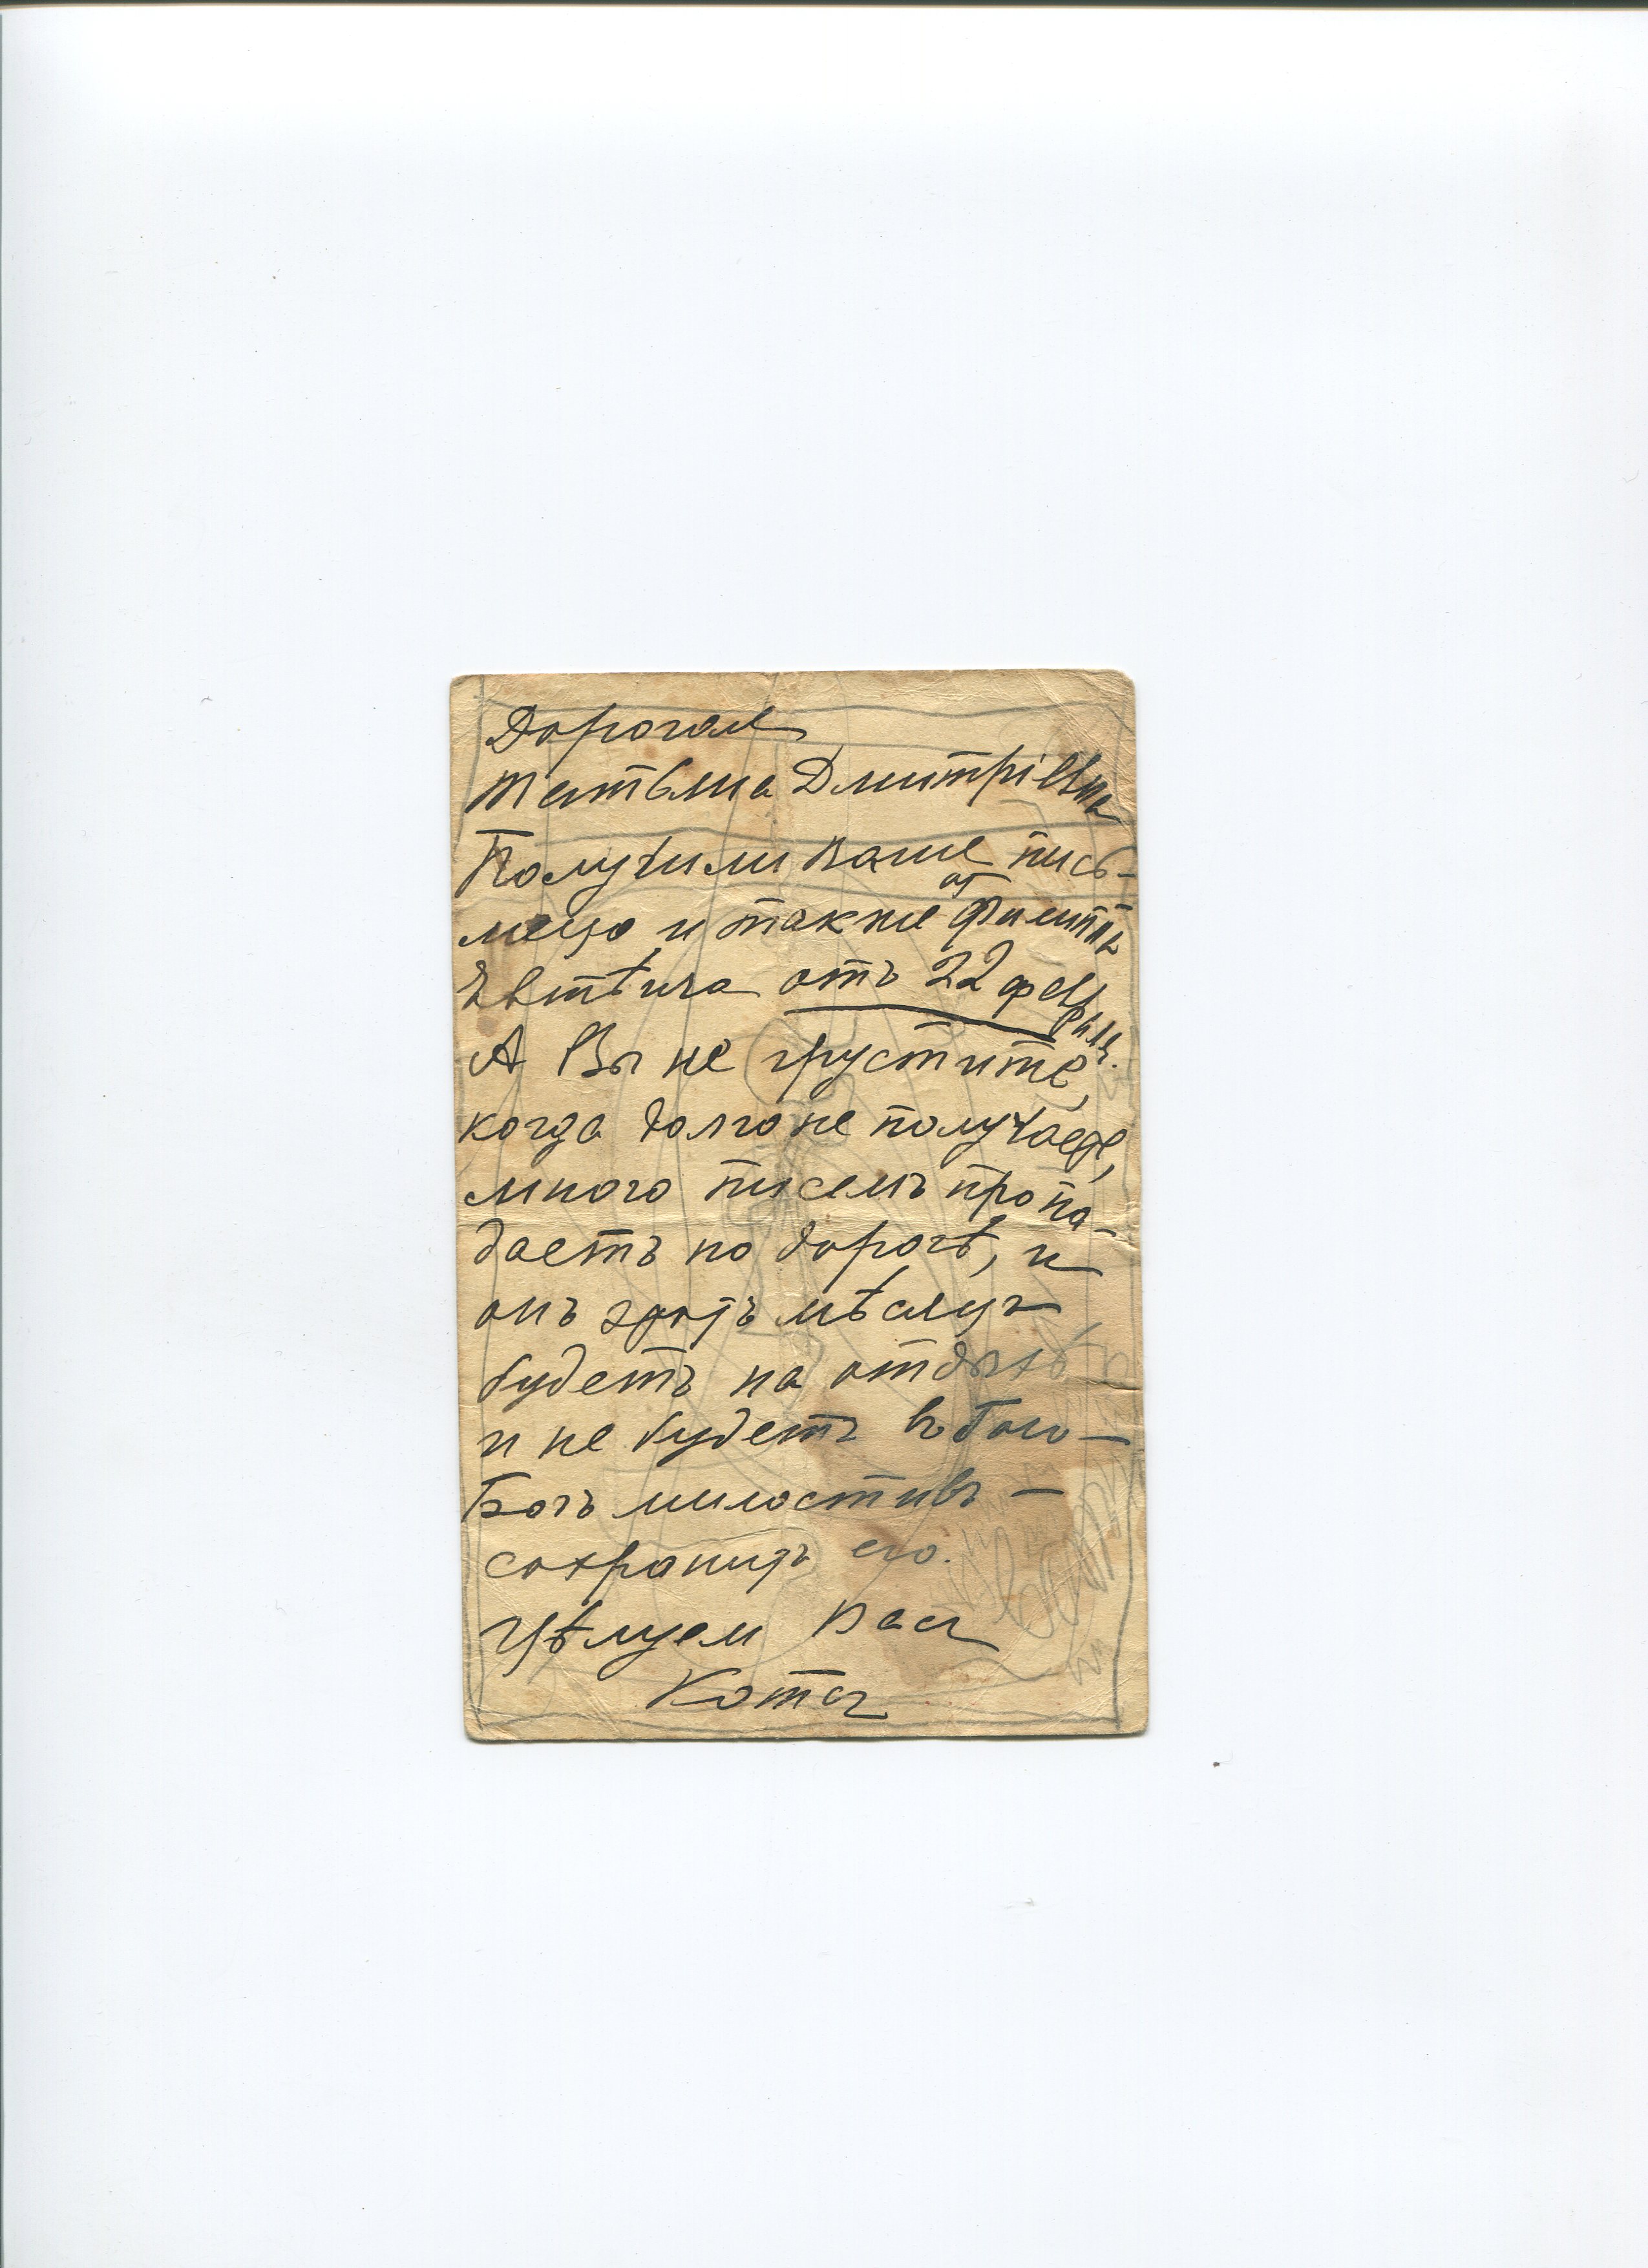 Дорогая
Татьяна Дмитріевна
Получили ваше пись-
мецо и также от
Евтѣича отъ 22 февраля.
А Вы не грустите,
когда долго не получаете,
много писемъ пропа-
даетъ по дорогѣ, и
онъ этотъ мѣсяцъ
будетъ на отдыхѣ
и не будетъ въ бою —
Богъ милостивъ —
сохранитъ его.
Цѣлуем Вас